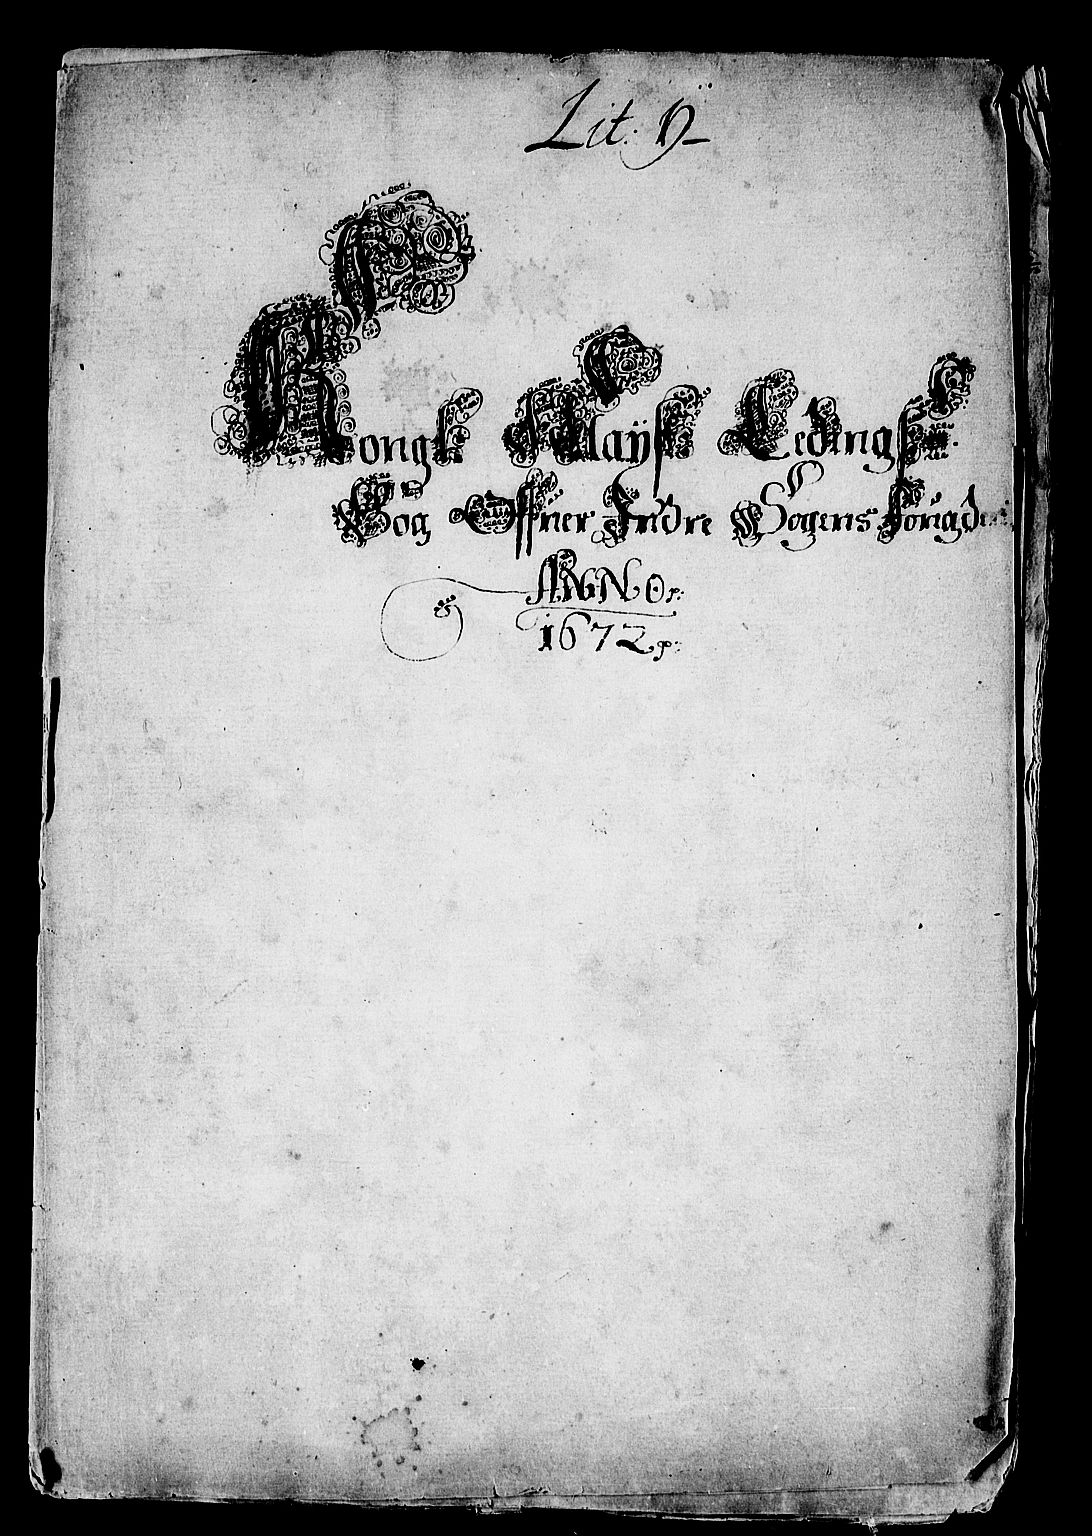 Lit: Ÿ
Kongl Maÿst Tedings
Bog Offuer Indre Sogens Fougderi
ANNO
1672